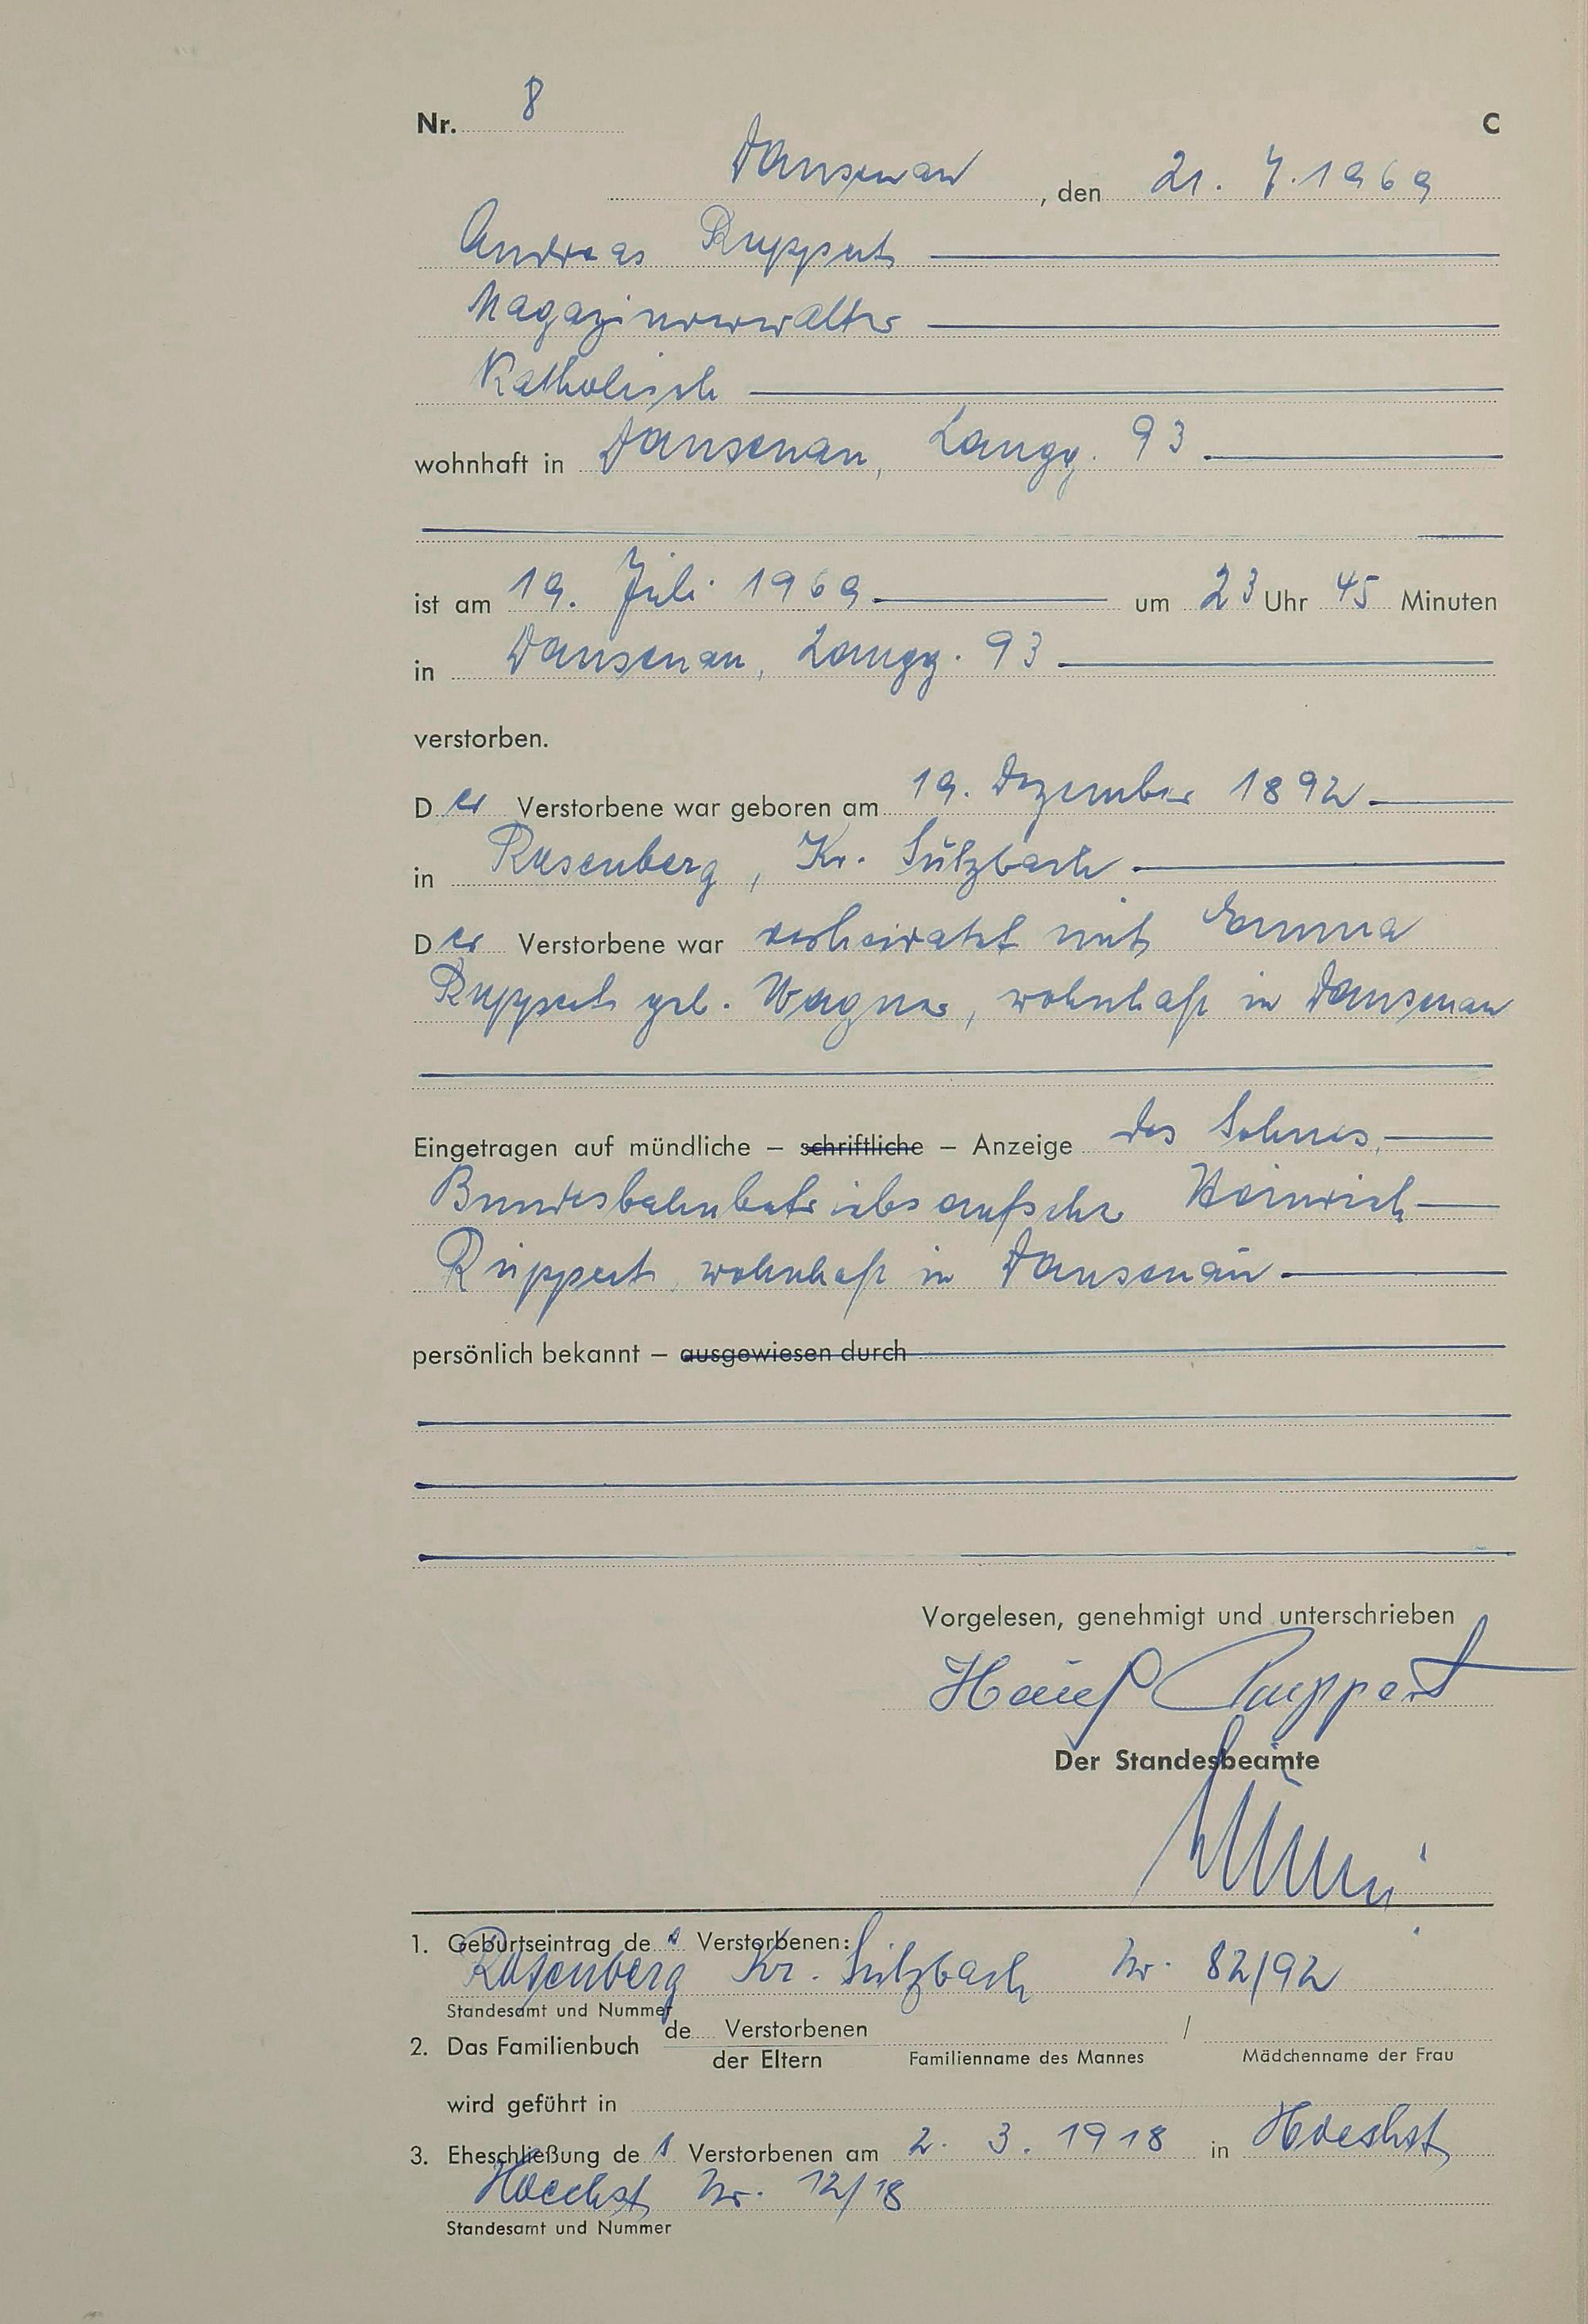 Nr. 8 C
Dausenau, den 21. 7. 1969
Andreas Ruppert
Magazinverwalter
Katholisch
wohnhaft in Dausenau, Langg. 93
ist am 19. Juli 1969 um 23 Uhr 45 Minuten
in Dausenau, Langg. 93
verstorben.
Der Verstorbene war geboren am 19. Dezember 1892
in Rosenberg, Kr. Sulzbach
Der Verstorbene war verheiratet mit Emma
Ruppert geb. Wagner, wohnhaft in Dausenau
Eingetragen auf mündliche – schriftliche – Anzeige des Sohnes,
Bundesbahnbetriebsaufseher Heinrich
Ruppert, wohnhaft in Dausenau
persönlich bekannt – ausgewiesen durch
Vorgelesen, genehmigt und unterschrieben
Ruppert
Der Standesbeamte
1. Geburtseintrag des Verstorbenen:
Rosenberg Kr. Sulzbach Nr. 82/92
Standesamt und Nummer
2. Das Familienbuch de Verstorbenen /
der Eltern Familienname des Mannes Mädchenname der Frau
wird geführt in
3. Eheschließung des Verstorbenen am 2. 3. 1918 in Hoechst
Hoechst Nr. 12/18
Standesamt und Nummer